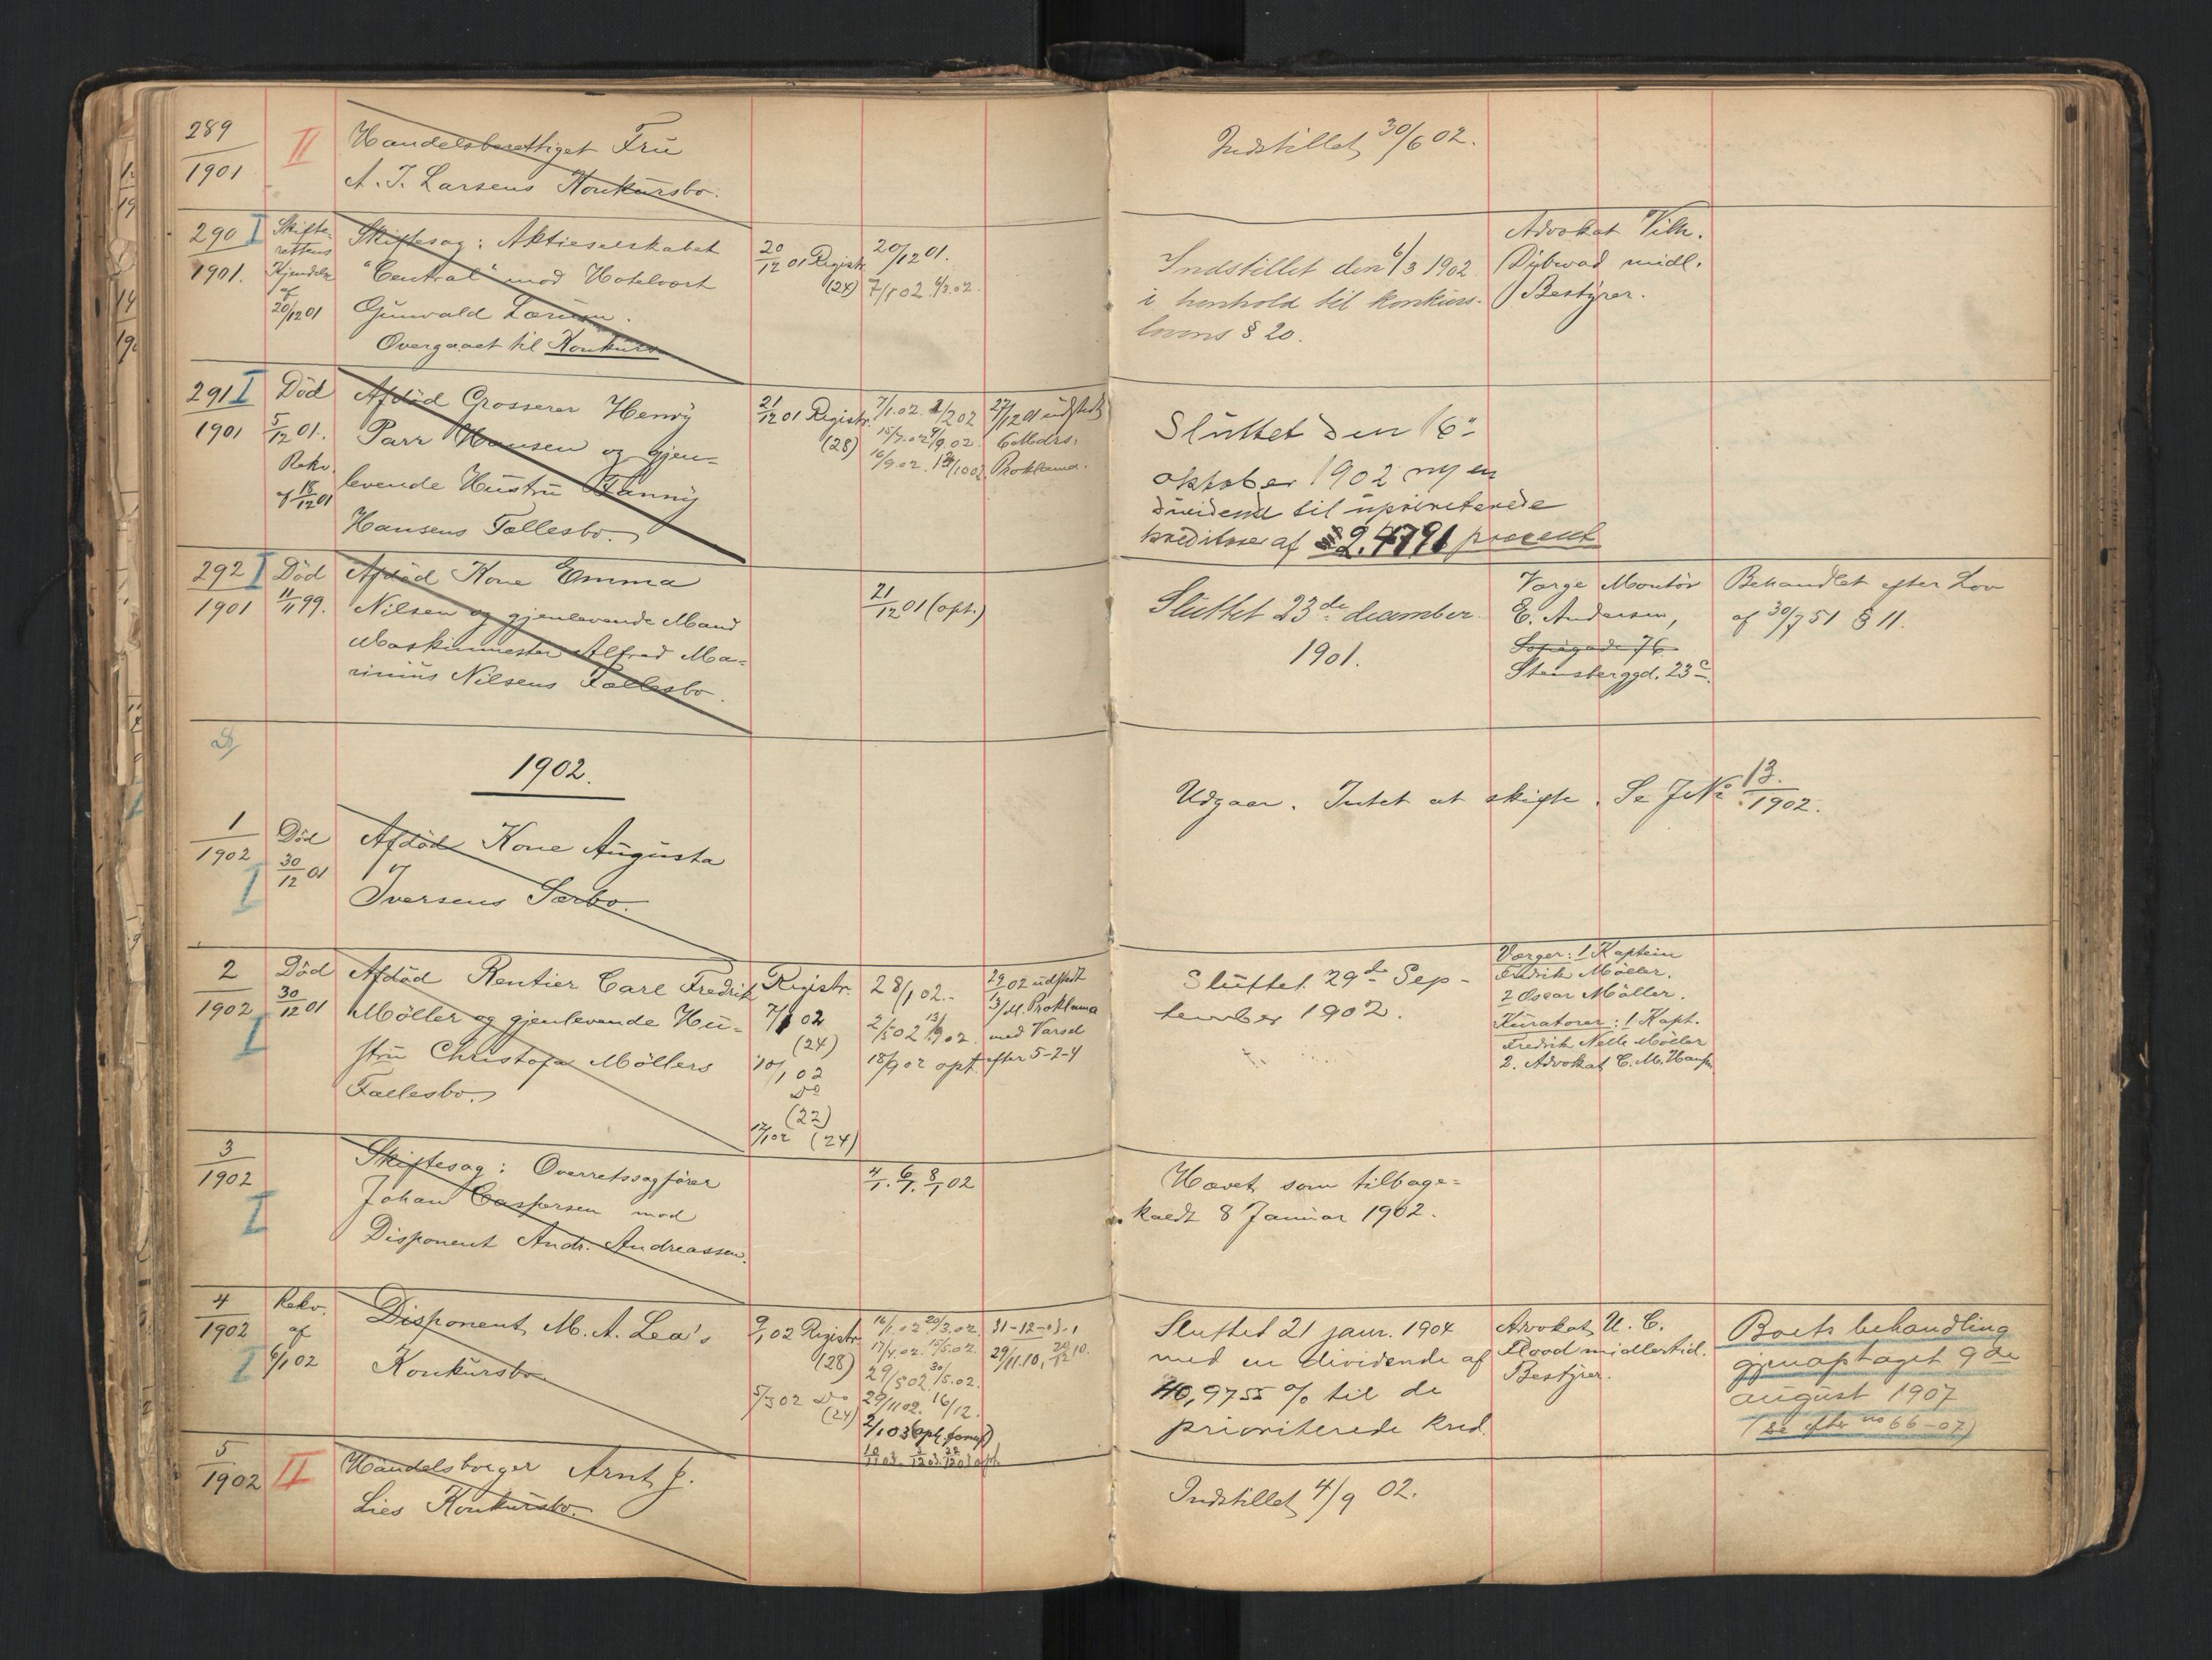 289
1901
II
Handelsberettiget Frü
A. J. Larsens Konkürsbo.
Indstillet 30/6 02.
290 I
1901.
Skifte-
rettens
Kjendelse
af
20/12 01
Skiftesag: Aktieselskabet
"Central" mod Hotelvært
Günvald Lorüm.
Overgaaet til Konkürs
20/12 01 Registr.
(24)
20/12 01.
7/1 02 6/3.02.
Indstillet den 6/3 1902
i henhold til konkürs-
lovens § 20.
Advokat Vilh.
Dybwad midl.
Bestÿrer.
291 I
1901
Död
5/12 01.
Rekv.
af 18/12 01
Afdöd Grosserer Henrÿ
Parr Hansen og gjen-
levende Hüstrü Fannÿ
Hansens Fællesbo.
21/12 01 Registr.
(28)
27/12 01 üdstedt
6 Mdrs.
Proklama.
Slüttet den 16de
oktober 1902 m en
dividende til üprioriterede
kreditorer af 2,4791 procent
292 I
1901
Död
11/11 99.
Afdöd Kone Emma
Nilsen og gjenlevende Mand
Maskinmester Alfred Ma-
rinius Nilsens Fællesbo.
21/12 01 (opt.)
Slüttet 23de december
1901.
Værge Montör
E. Andersen,
Sofiegade 76
Stensberggd. 23c.
Behandlet efter Lov
af 30/7 51 § 11.
1902.
1
1902
I
Död
30/12 01
Afdöd Kone Aügüsta
Iversens Særbo.
Udgaar. Intet at skifte. Se J.No 13/1902.
2
1902
I
Död
30/12 01
Afdöd Rentier Carl Fredrik
Möller og gjenlevende Hü-
strü Christofa Möllers
Fællesbo.
Registr.
7/1 02
(24)
10/1 02
Do
(22)
17/1 02 (24)
28/1 02.
2/5 02 13/9 02.
18/9 02 opt.
29/1 02 üdstedt
13/M. Proklama
med Varsel
efter 5-2-4
Slüttet 29de Sep-
tember 1902.
Værger: 1 Kaptein
Fredrik Möller.
2 Oscar Möller.
Küratorer: 1 Kapt.
Fredrik Nelle Möller
2. Advokat C. M. Hansen
3
1902
I
Skiftesag: Overretssagförer
Johan Caspersen mod
Disponent Andr. Andreassen.
4/1. 6/1. 8/1 02
Hævet som tilbage-
kaldt 8 Januar 1902.
4
1902
I
Rekv.
af
6/1 02
Disponent M. A. Lea's
Konkürsbo.
9/1 02 Registr.
(28)
5/3 02 Do
(24)
16/1.02 20/3.02.
17/4.02. 15/5.02.
29/5 02. 30/5.02.
29/11 02. 16/12.
31-12-03.
29/11.10, 20/12 10.
Sluttet 21 janr. 1904
med en dividende af
40,9755 % til de
prioriterede kred.
Advokat U. C.
Flood midlertid.
Bestÿrer.
Boets behandling
gjenoptaget 9de
august 1907
(se efter no 66-07)
5
1902
II
Handelsborger Arnt J.
Lies Konkürsbo.
Indstillet 4/9 02.